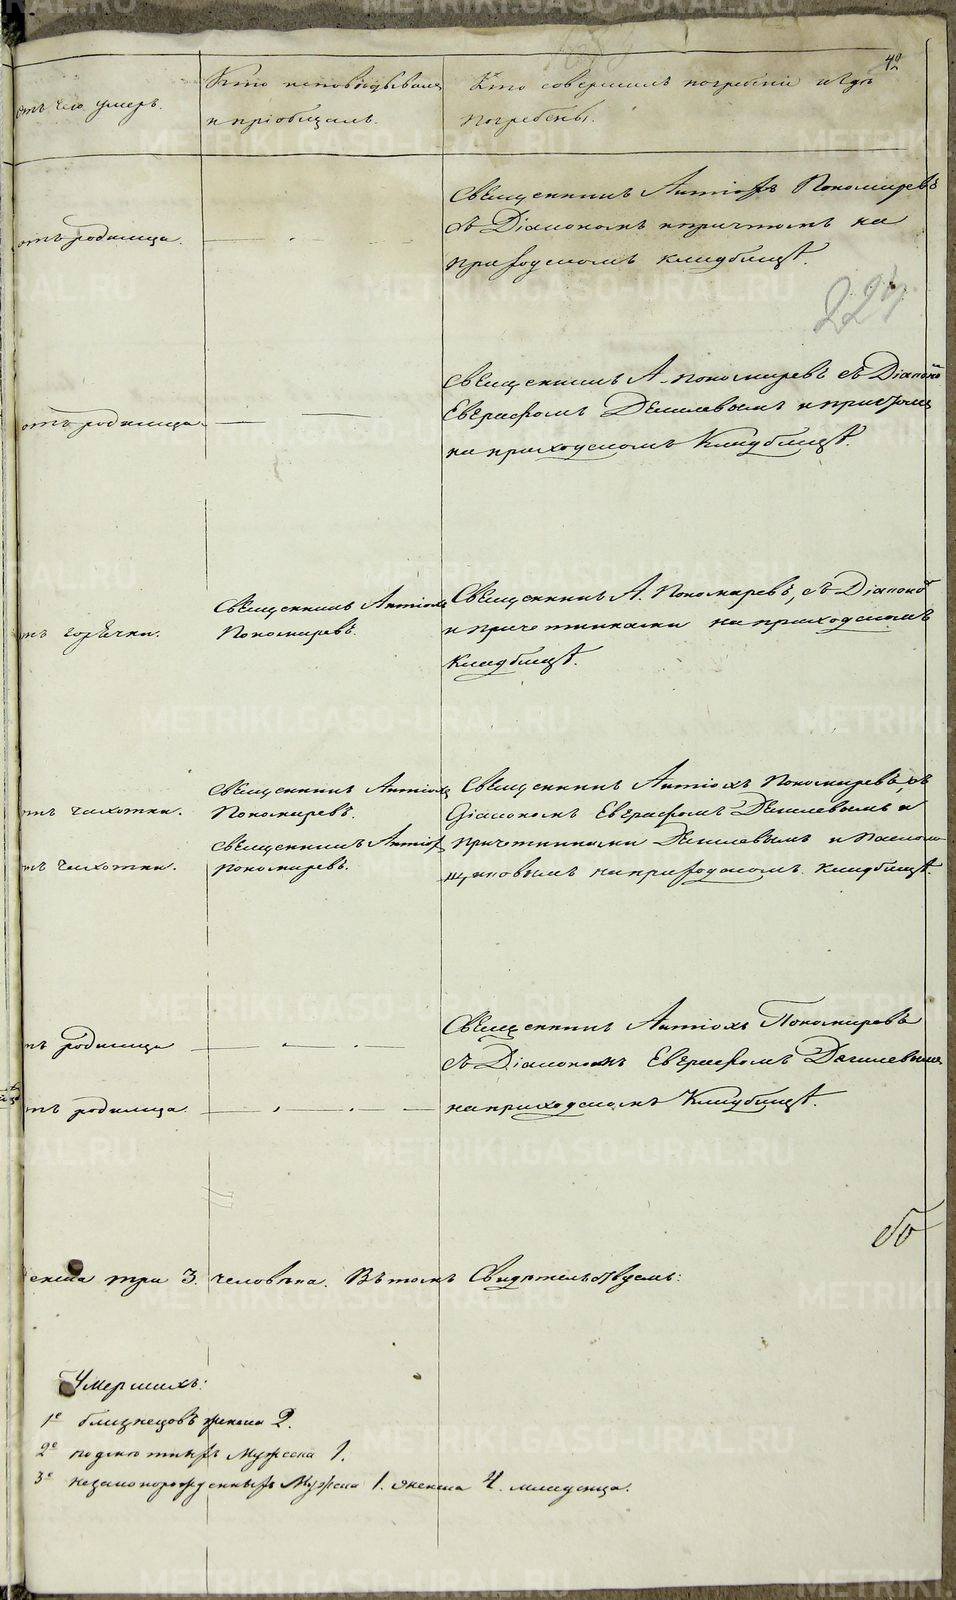 42
отъ чего умеръ.
Кто исповѣдывалъ
и пріобщалъ.
Кто совершалъ погребеніе и гдѣ
погребены.
отъ родимца.
Священникъ Антіохъ Пономаревъ
съ Діакономъ и причтомъ на
приходскомъ кладбищѣ.
227
отъ родимца.
Священникъ А. Пономаревъ съ Діакономъ
Евграфомъ Демилевымъ и причтомъ
на приходскомъ Кладбищѣ.
отъ горячки.
Священникъ Антіохъ
Пономаревъ.
Священникъ А. Пономаревъ, съ Діакономъ
и причетниками на приходскомъ
Кладбищѣ.
отъ чахотки.
Священникъ Антіохъ
Пономаревъ.
отъ чахотки.
Священникъ Антіохъ
Пономаревъ.
Священникъ Антіохъ Пономаревъ, съ
Діакономъ Евграфомъ Демилевымъ и
причетниками Демилевымъ и
на приходскомъ кладбищѣ.
отъ родимца
отъ родимца.
Священникъ Антіохъ Пономаревъ
съ Діакономъ Евграфомъ
на приходскомъ Кладбищѣ.
женска три 3. человѣка. Въ томъ Свидѣтельствуемъ:
Умершихъ:
1е близнецовъ женска 2.
2е Мужеска 1.
3е незаконорожденныхъ Мужска 1. Женска 4. младенца.
METRIKI.GASO-URAL.RU